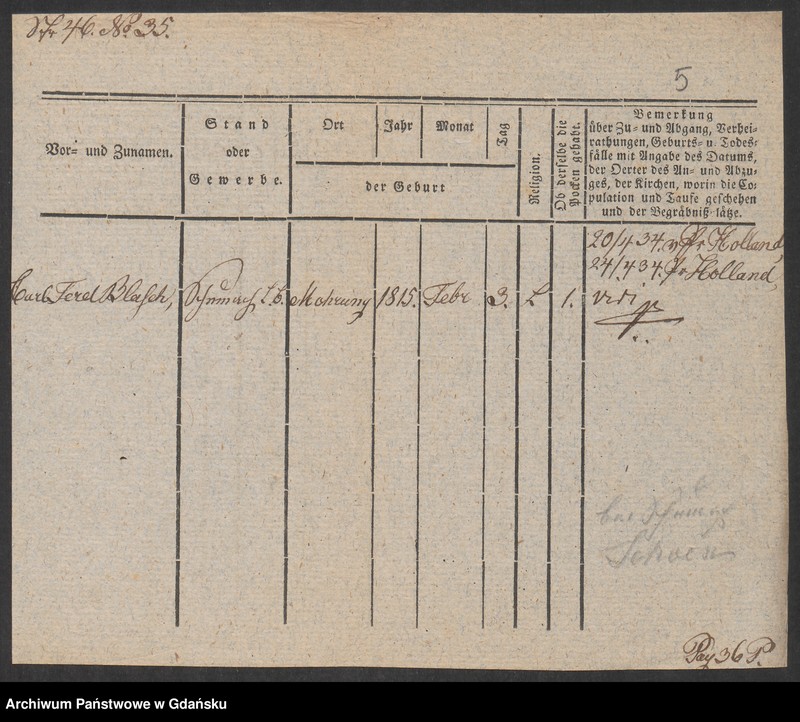 46. No 35.
5
Vor- und Zunamen.
Stand
oder
Gewerbe.
Ort
Jahr
Monat
Tag
der Geburt
Religion.
Ob derselbe die
Pocken gehabt.
Bemerkung
über Zu- und Abgang, Verhei-
rathungen, Geburts- u. Todes-
fälle mit Angabe des Datums,
der Oerter des An- und Abzu-
ges, der Kirchen, worin die Co-
pulation und Taufe geschehen
und der Begräbniß-lätze.
20/4 34. v Pr Holland
24/4 34. Pr Holland,
Carl Ferd Blasch, Schumach Mohrung 1815. Febr 3. L 1. vidi
bei
Schoen
Pag 36 P.
Archiwum Państwowe w Gdańsku